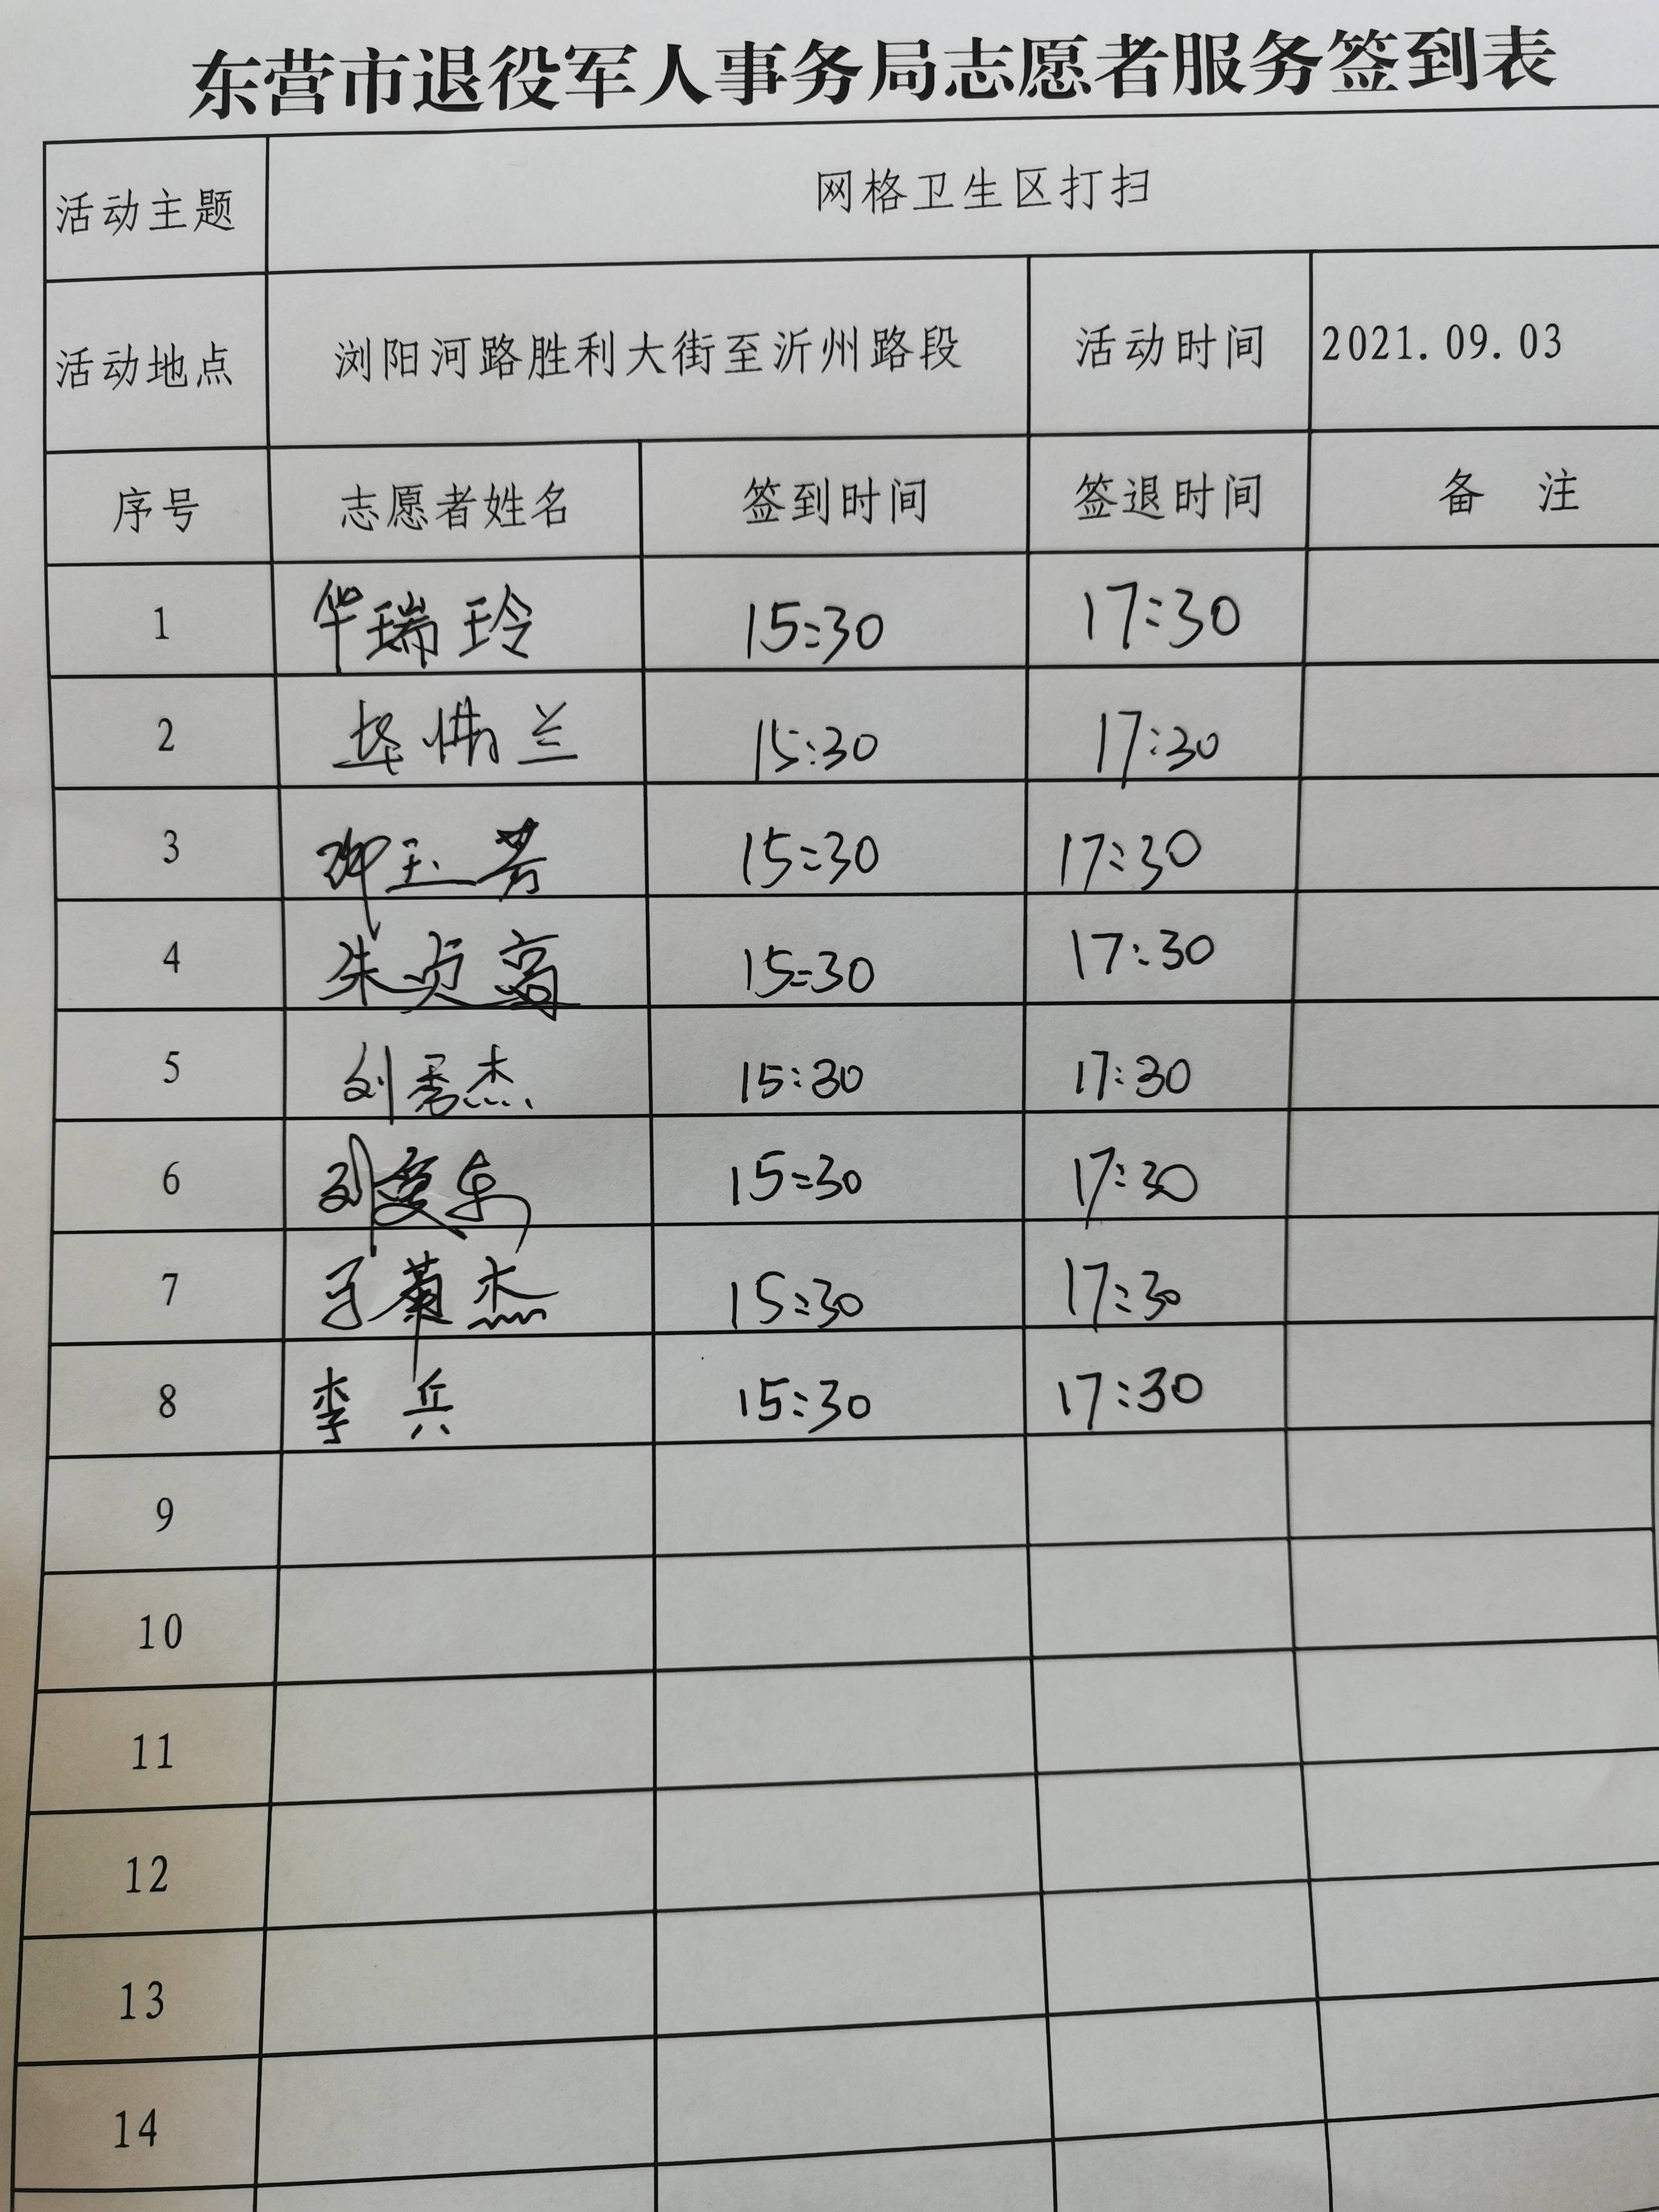 东营市退役军人事务局志愿者服务签到表
活动主题 网格卫生区打扫
活动地点 浏阳河路胜利大街至沂州路段 活动时间 2021.09.03
序号 志愿者姓名 签到时间 签退时间 备 注
1 华瑞玲 15:30 17:30
2 兰 15:30 17:30
3 玉芳 15:30 17:30
4 朱贞高 15:30 17:30
5 刘秀杰 15:30 17:30
6 刘爱东 15:30 17:30
7 于菊杰 15:30 17:30
8 李兵 15:30 17:30
9
10
11
12
13
14